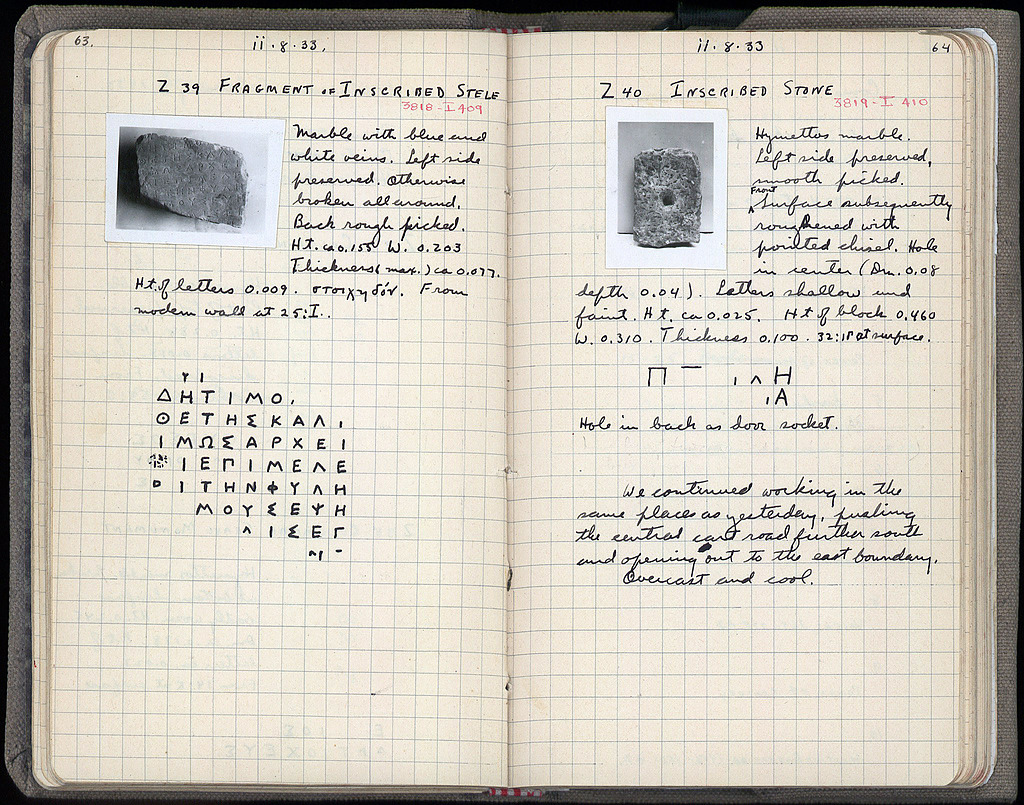 63.
ii · 8 · 33,
Z 39 FRAGMENT OF INSCRIBED STELE
3818 - I 409
Marble with blue and
white veins. Left side
preserved. Otherwise
broken all around.
Back rough picked.
Ht. ca 0.155 W. 0.203
Thickness (max.) ca 0.077.
Ht. of letters 0.009. στοιχηδόν. From
modern wall at 25:I.
Υ Ι
Δ Η Τ Ι Μ Ο ,
Θ Ε Τ Η Σ Κ Α Λ Ι
Ι Μ Ω Σ Α Ρ Χ Ε Ι
Ι Ε Π Ι Μ Ε Λ Ε
Ι Τ Η Ν Φ Υ Λ Η
Μ Ο Υ Σ Ε Ψ Η
Λ Ι Σ Ε Γ
ii · 8 · 33
64
Z 40 INSCRIBED STONE
3819 - I 410
Hymettos marble.
Left side preserved,
smooth picked.
Front
Surface subsequently
roughened with
pointed chisel. Hole
in center (Dm. 0.08
depth 0.04). Letters shallow and
faint. Ht. ca 0.025. Ht of block 0.460
W. 0.310. Thickness 0.100. 32: at surface.
Π ¯ ι Λ Η
ι Α
Hole in back as door socket.
We continued working in the
same places as yesterday, pushing
the central cart road further south
and opening out to the east boundary.
Overcast and cool.